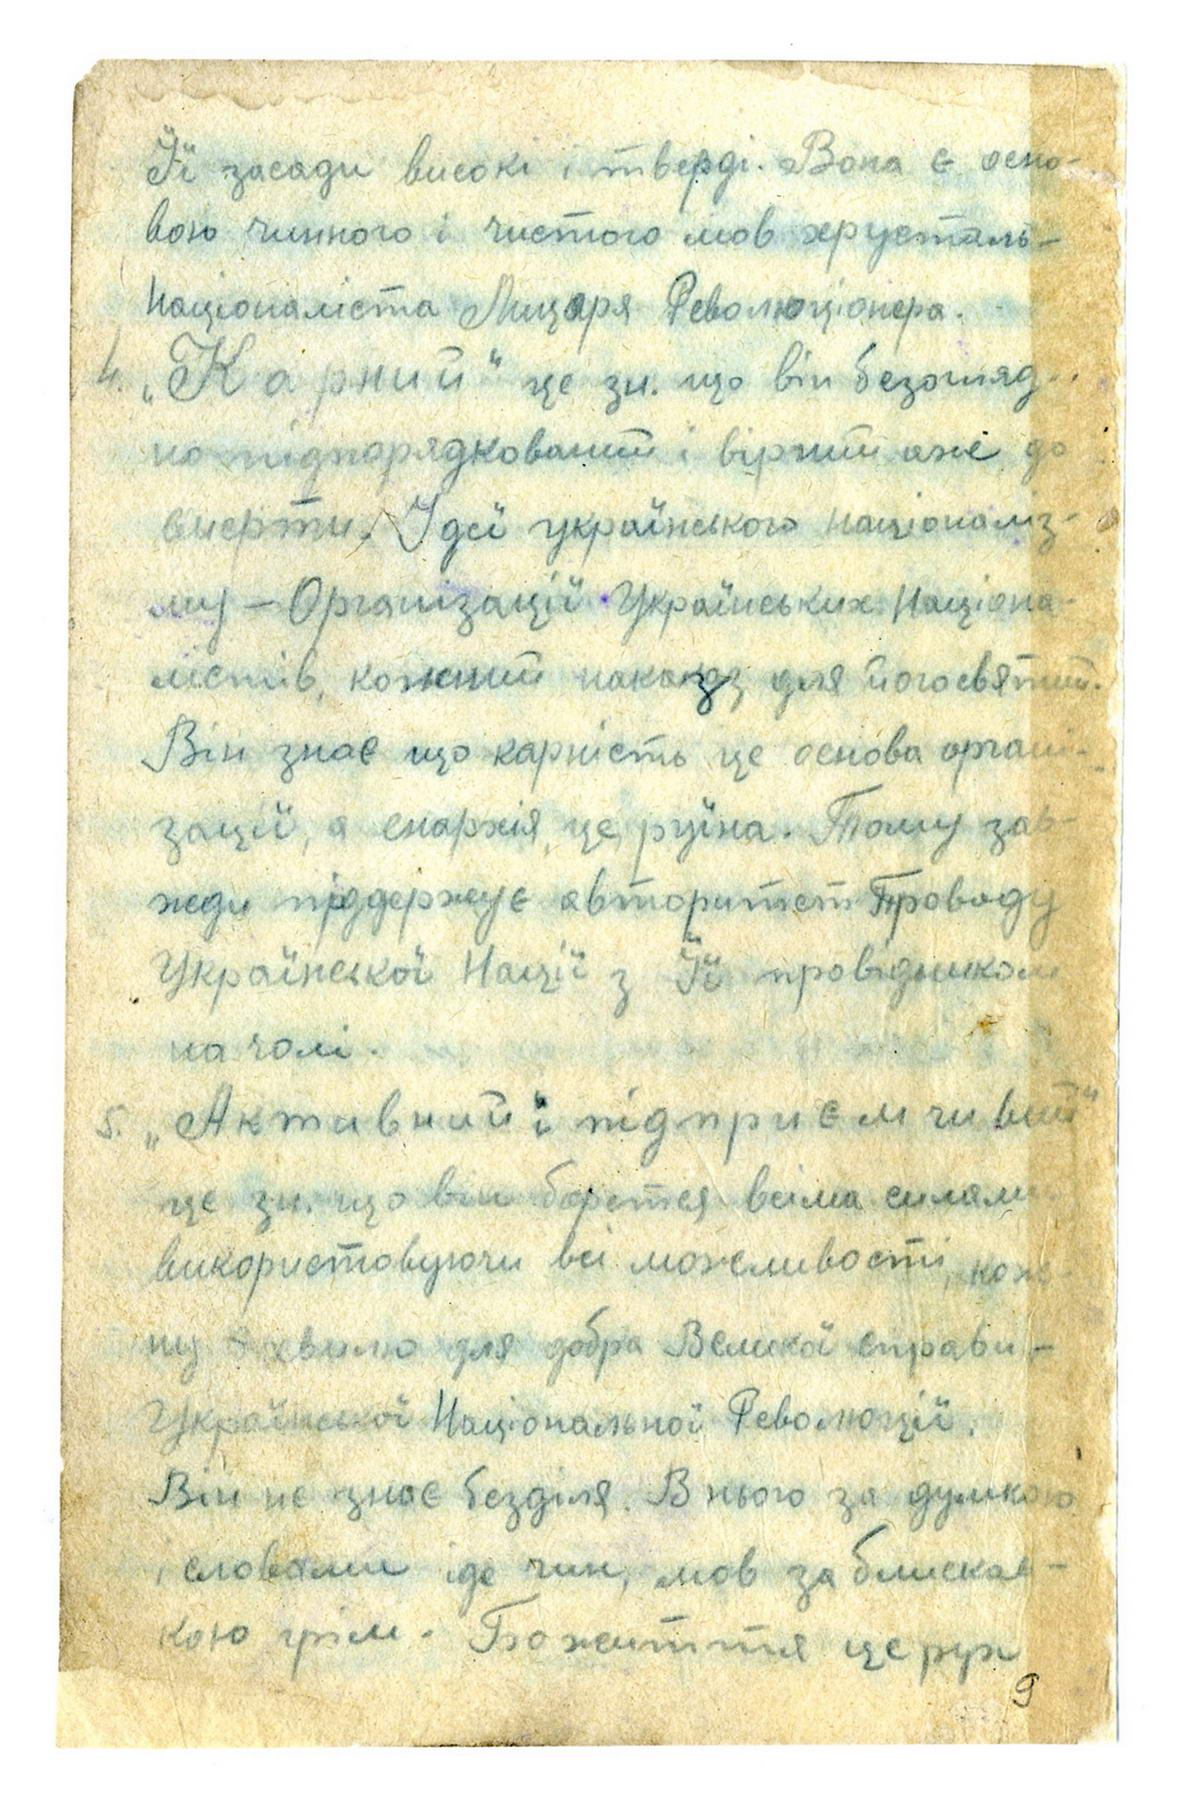 Її засади високі і тверді. Вона є осно-
вою чинного і чистого мов хрусталь-
Націоналіста Лицаря Революціонера.
4. „Карний" це зн. що він безогляд-
но підпорядкований і вірний аже до
смерти. Ідеї українського націоналіз-
му – Організації Українських Націона-
лістів, кожний наказ для його святий.
Він знає що карність це основа органі-
зації, а єнархія, це руїна. Тому зав-
жди піддержує авторитет Проводу
Української Нації з Її провідником
на чолі.
5. „Активний і підприємчивий"
це зн. що він бореться всіма силами
використовуючи всі можливості, кож-
ну хвилю для добра Великої справи –
Української Національної Революції.
Він не знає безділя. В нього за думкою
і словами іде чин, мов за блискав-
кою грім. Бо життя це рух
9